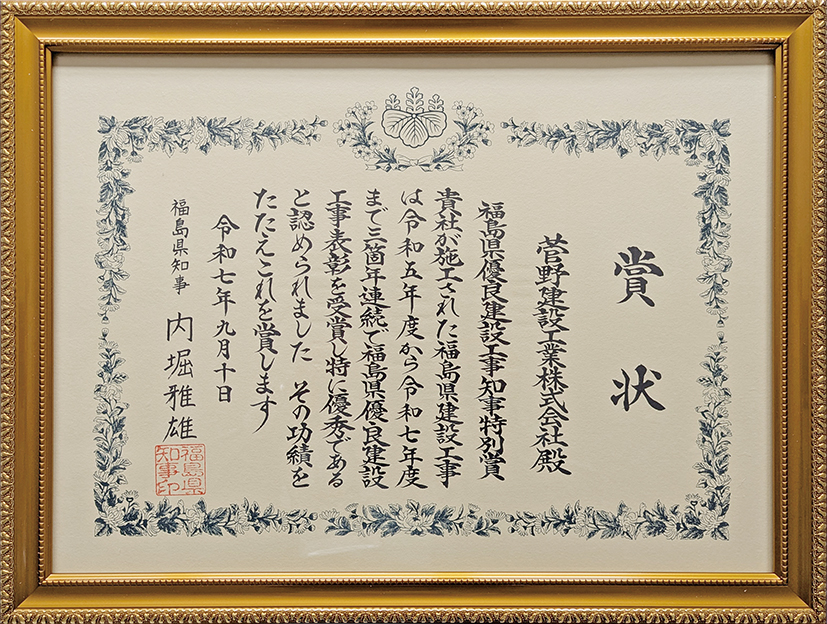 賞状
菅野建設工業株式会社殿
福島県優良建設工事知事特別賞
貴社が施工された福島県建設工事
は令和五年度から令和七年度
まで三箇年連続で福島県優良建設
工事表彰を受賞し特に優秀である
と認められました その功績を
たたえこれを賞します
令和七年九月十日
福島県知事 内堀雅雄
福島県
知事印